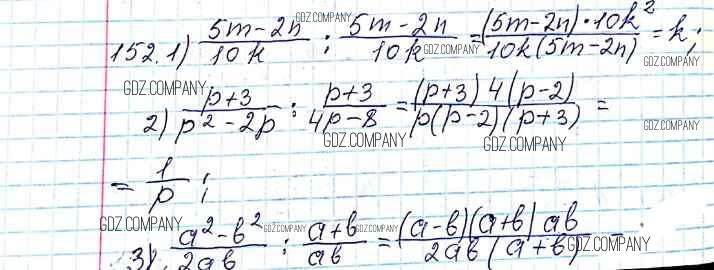 152. 1) (5m-2n)/(10k) : (5m-2n)/(10k) = ((5m-2n)·10k²)/(10k(5m-2n)) = k;
2) (p+3)/(p²-2p) : (p+3)/(4p-8) = ((p+3)4(p-2))/(p(p-2)(p+3)) =
= 1/p;
3) (a²-b²)/(2ab) : (a+b)/(ab) = ((a-b)(a+b)ab)/(2ab(a+b)) =
GDZ.COMPANY
GDZ.COMPANY
GDZ.COMPANY
GDZ.COMPANY
GDZ.COMPANY
GDZ.COMPANY
GDZ.COMPANY
GDZ.COMPANY
GDZ.COMPANY
GDZ.COMPANY
GDZ.COMPANY
GDZ.COMPANY